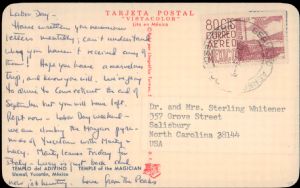 TARJETA POSTAL
"VISTACOLOR"
Lito en México
Labor Day -
Have written you numerous
letters mentally; can't understand
why you haven't received any of
them! Hope you have a marvelous
trip, and know you will. We're going
to drive to Connecticut the end of
September but you will have left.
Right now - Labor Day weekend -
we are climbing the Mayan pyra-
mids of Yucatan with Marty +
Lucy. Marty leaves Friday for
Italy - Lucy is just back and
now job hunting. Love from the Peaks
80 CTS
CORREO
AEREO
MEXICO
Dr. and Mrs. Sterling Whitener
357 Grove Street
Salisbury
North Carolina 38144
USA
TEMPLO del ADIVINO
TEMPLE of the MAGICIAN
Uxmal, Yucatán, México